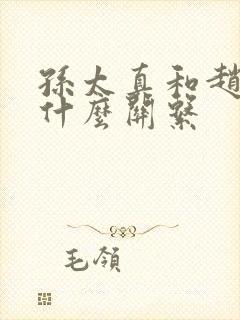 孫太真和趙
什麼關繫
毛領